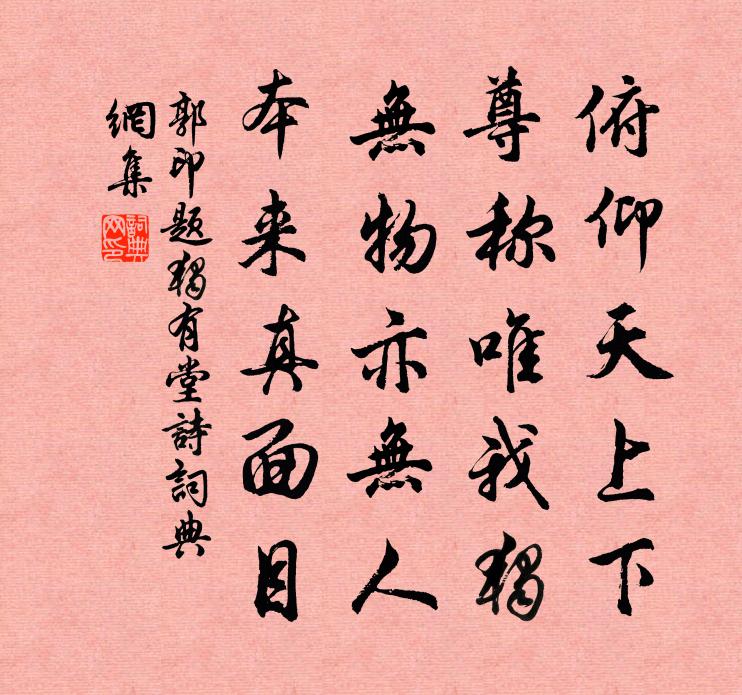 俯仰天上下
尊称唯我獨
無物亦無人
本来真面目
郭印題獨有堂詩詞典
網集
詞典網印